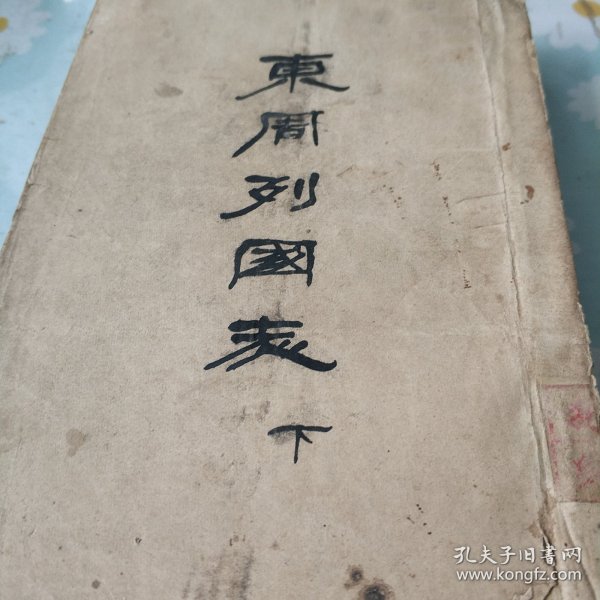 東周列國志
下
孔夫子旧書网
www.kongfz.com